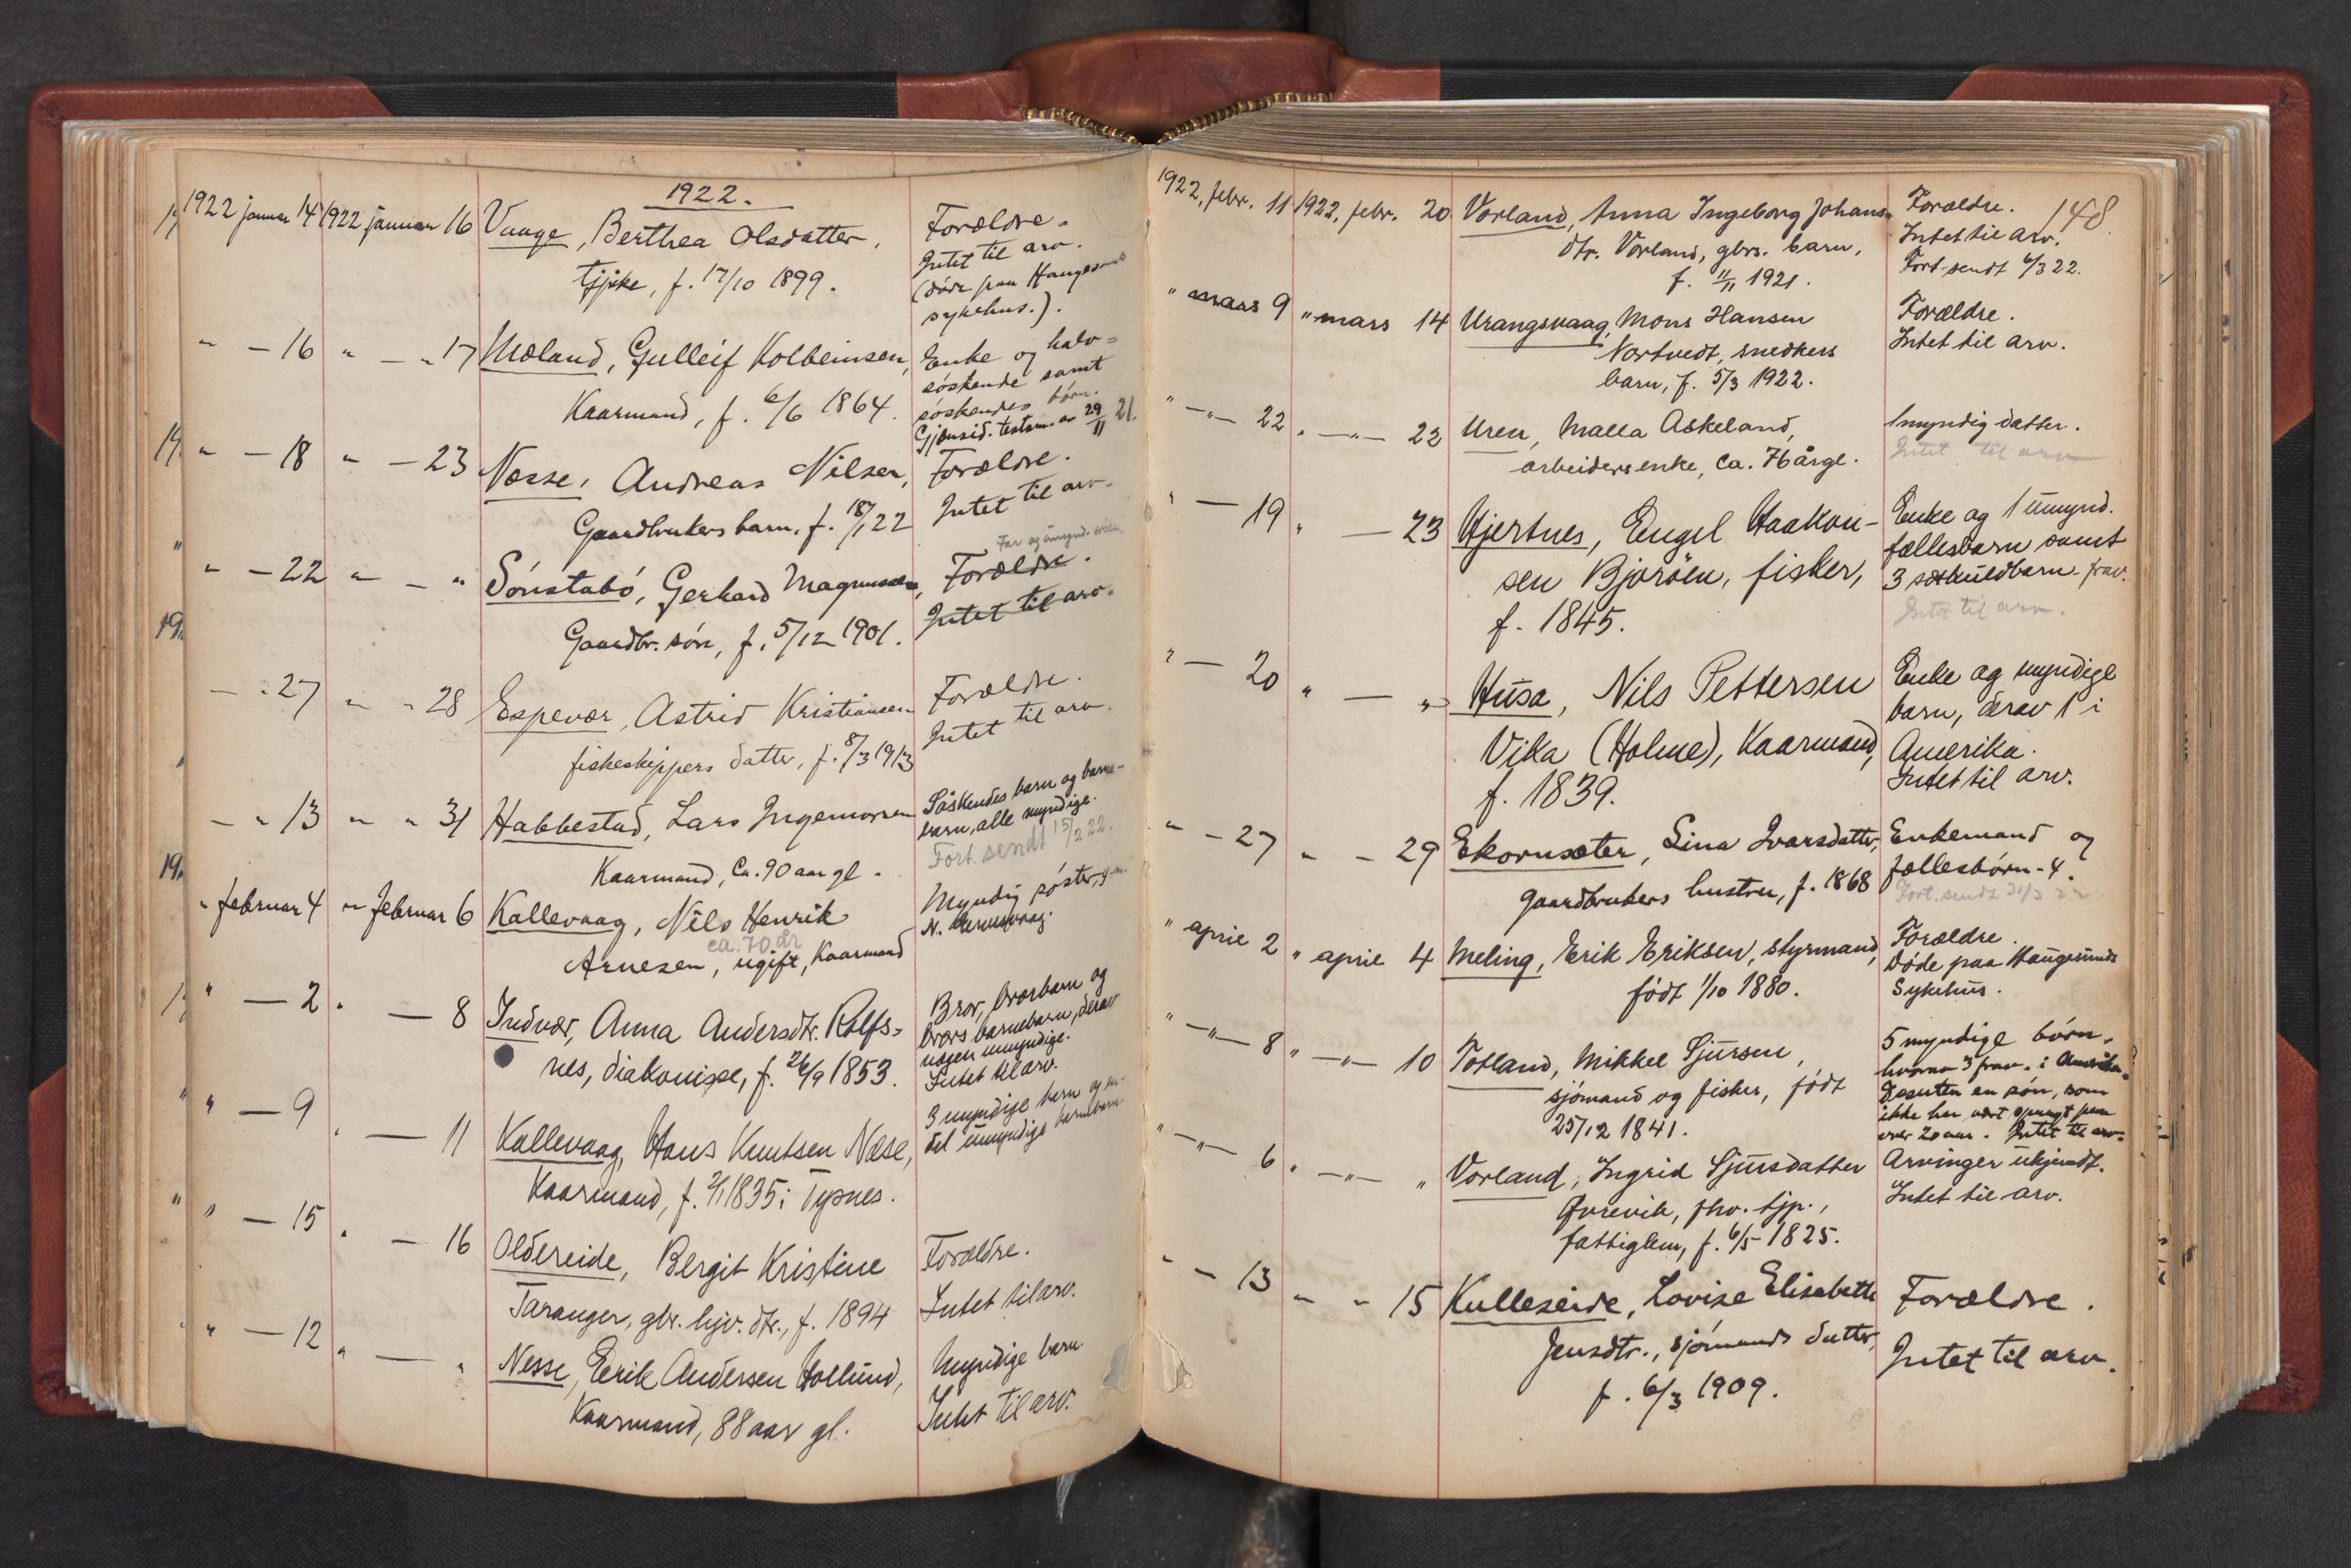 1922.
1922 januar 14 1922 januar 16 Vaage, Berthea Olsdatter,
tjpike, f. 17/10 1899.
Forældre.
Intet til arv.
(døde paa Haugesunds
sykehus.).
" - 16 " - " 17 Mæland, Gulleif Kolbeinsen,
Kaarmand, f. 6/6 1864.
Enke og halv=
søskende samt
søskendes børn.
Gjensid. testam. av 29/11 21.
" - 18 " - 23 Næsse, Andreas Nilsen,
Gaardbrukers barn, f. 18/1 22
Forældre.
Intet til arv.
" - 22 " - " Sønstabø, Gerhard Magnussen,
Gaardbr. søn, f. 5/12 1901.
Far og umynd.
Forældre.
Intet til arv.
- " 27 " - " 28 Espevær, Astrid Kristiansen
fiskeskippers datter, f. 8/3 1913
Forældre.
Intet til arv.
- " 13 " " 31 Habbestad, Lars Ingemorsen
Kaarmand, Ca. 90 aar gl.
Søskendes barn og barne-
barn, alle myndige.
Fort. sendt 15/2 22.
" februar 4 " februar 6 Kallevaag, Nils Henrik
ca. 70 år
Arnesen, ugift, Kaarmand
Myndig søster,
N.
" - 2 " - 8 Indvær, Anna Andersdtr. Rolfs=
nes, diakonisse, f. 26/9 1853.
Bror, brorbarn og
brors barnebarn, derav
nogen umyndige.
Intet til arv.
" - 9 " - 11 Kallevaag, Hans Knutsen Næse,
Kaarmand, f. 2/1 1835 i Tysnes.
3 myndige barn og en
del umyndige barnebarn.
" - 15 " - 16 Oldereide, Bergit Kristine
Taranger, gbr. hjv. dtr., f. 1894
Forældre.
Intet til arv.
" - 12 " - " Nesse, Eerik Andersen Hollund,
Kaarmand, 88 aar gl.
Myndige barn
Intet til arv.
148
1922, febr. 11 1922, febr. 20 Vorland, Anna Ingeborg Johans-
dtr. Vorland, gbrs. barn,
f. 11/11 1921.
Forældre.
Intet til arv.
Fort. sendt 6/3 22.
" mars 9 " mars 14 Urangsvaag, Mons Hansen
Nortvedt, snedkers
barn, f. 5/3 1922.
Forældre.
Intet til arv.
" - " - 22 " - " - 22 Uren, Malla Askeland,
arbeidersenke, ca. 76 årgl.
1 myndig datter.
Intet til arv
" - 19 " - 23 Hjertnes, Engel Haakon-
sen Bjorøen, fisker,
f. 1845.
Enke og 1 umynd.
fællesbarn samt
3 særkuldbarn frav.
Intet til arv.
" - 20 " - " Husa, Nils Pettersen
Vika (Holme), Kaarmand,
f. 1839.
Enke og myndige
barn, derav 1 i
Amerika.
Intet til arv.
" - 27 " - 29 Ekornsæter, Lina Ivarsdatter,
gaardbrukers hustru, f. 1868
Enkemand og
fællesbørn - 4.
Fort. sendt 31/3 22
" april 2 " april 4 Meling, Erik Eriksen, styrmand,
født 1/10 1880.
Forældre.
Døde paa Haugesunds
Sykehus.
" - " - 8 " - " - 10 Totland, Mikkel Sjursen,
sjømand og fisker, født
25/12 1841.
5 myndige børn,
hvorav 3 frav. i Amerika.
Desuten en søn, som
ikke har vært spurgt paa
over 20 aar. Intet til arv.
" - " - 6 " - " - " Vorland, Ingrid Sjursdatter
Qvrevik, fhv. tjp.,
fattiglem, f. 6/5 1825.
Arvinger ukjendt.
Intet til arv.
" - 13 " - " 15 Kulleseide, Lovise Elisabeth
Jensdtr., sjømands datter,
f. 6/3 1909.
Forældre.
Intet til arv.